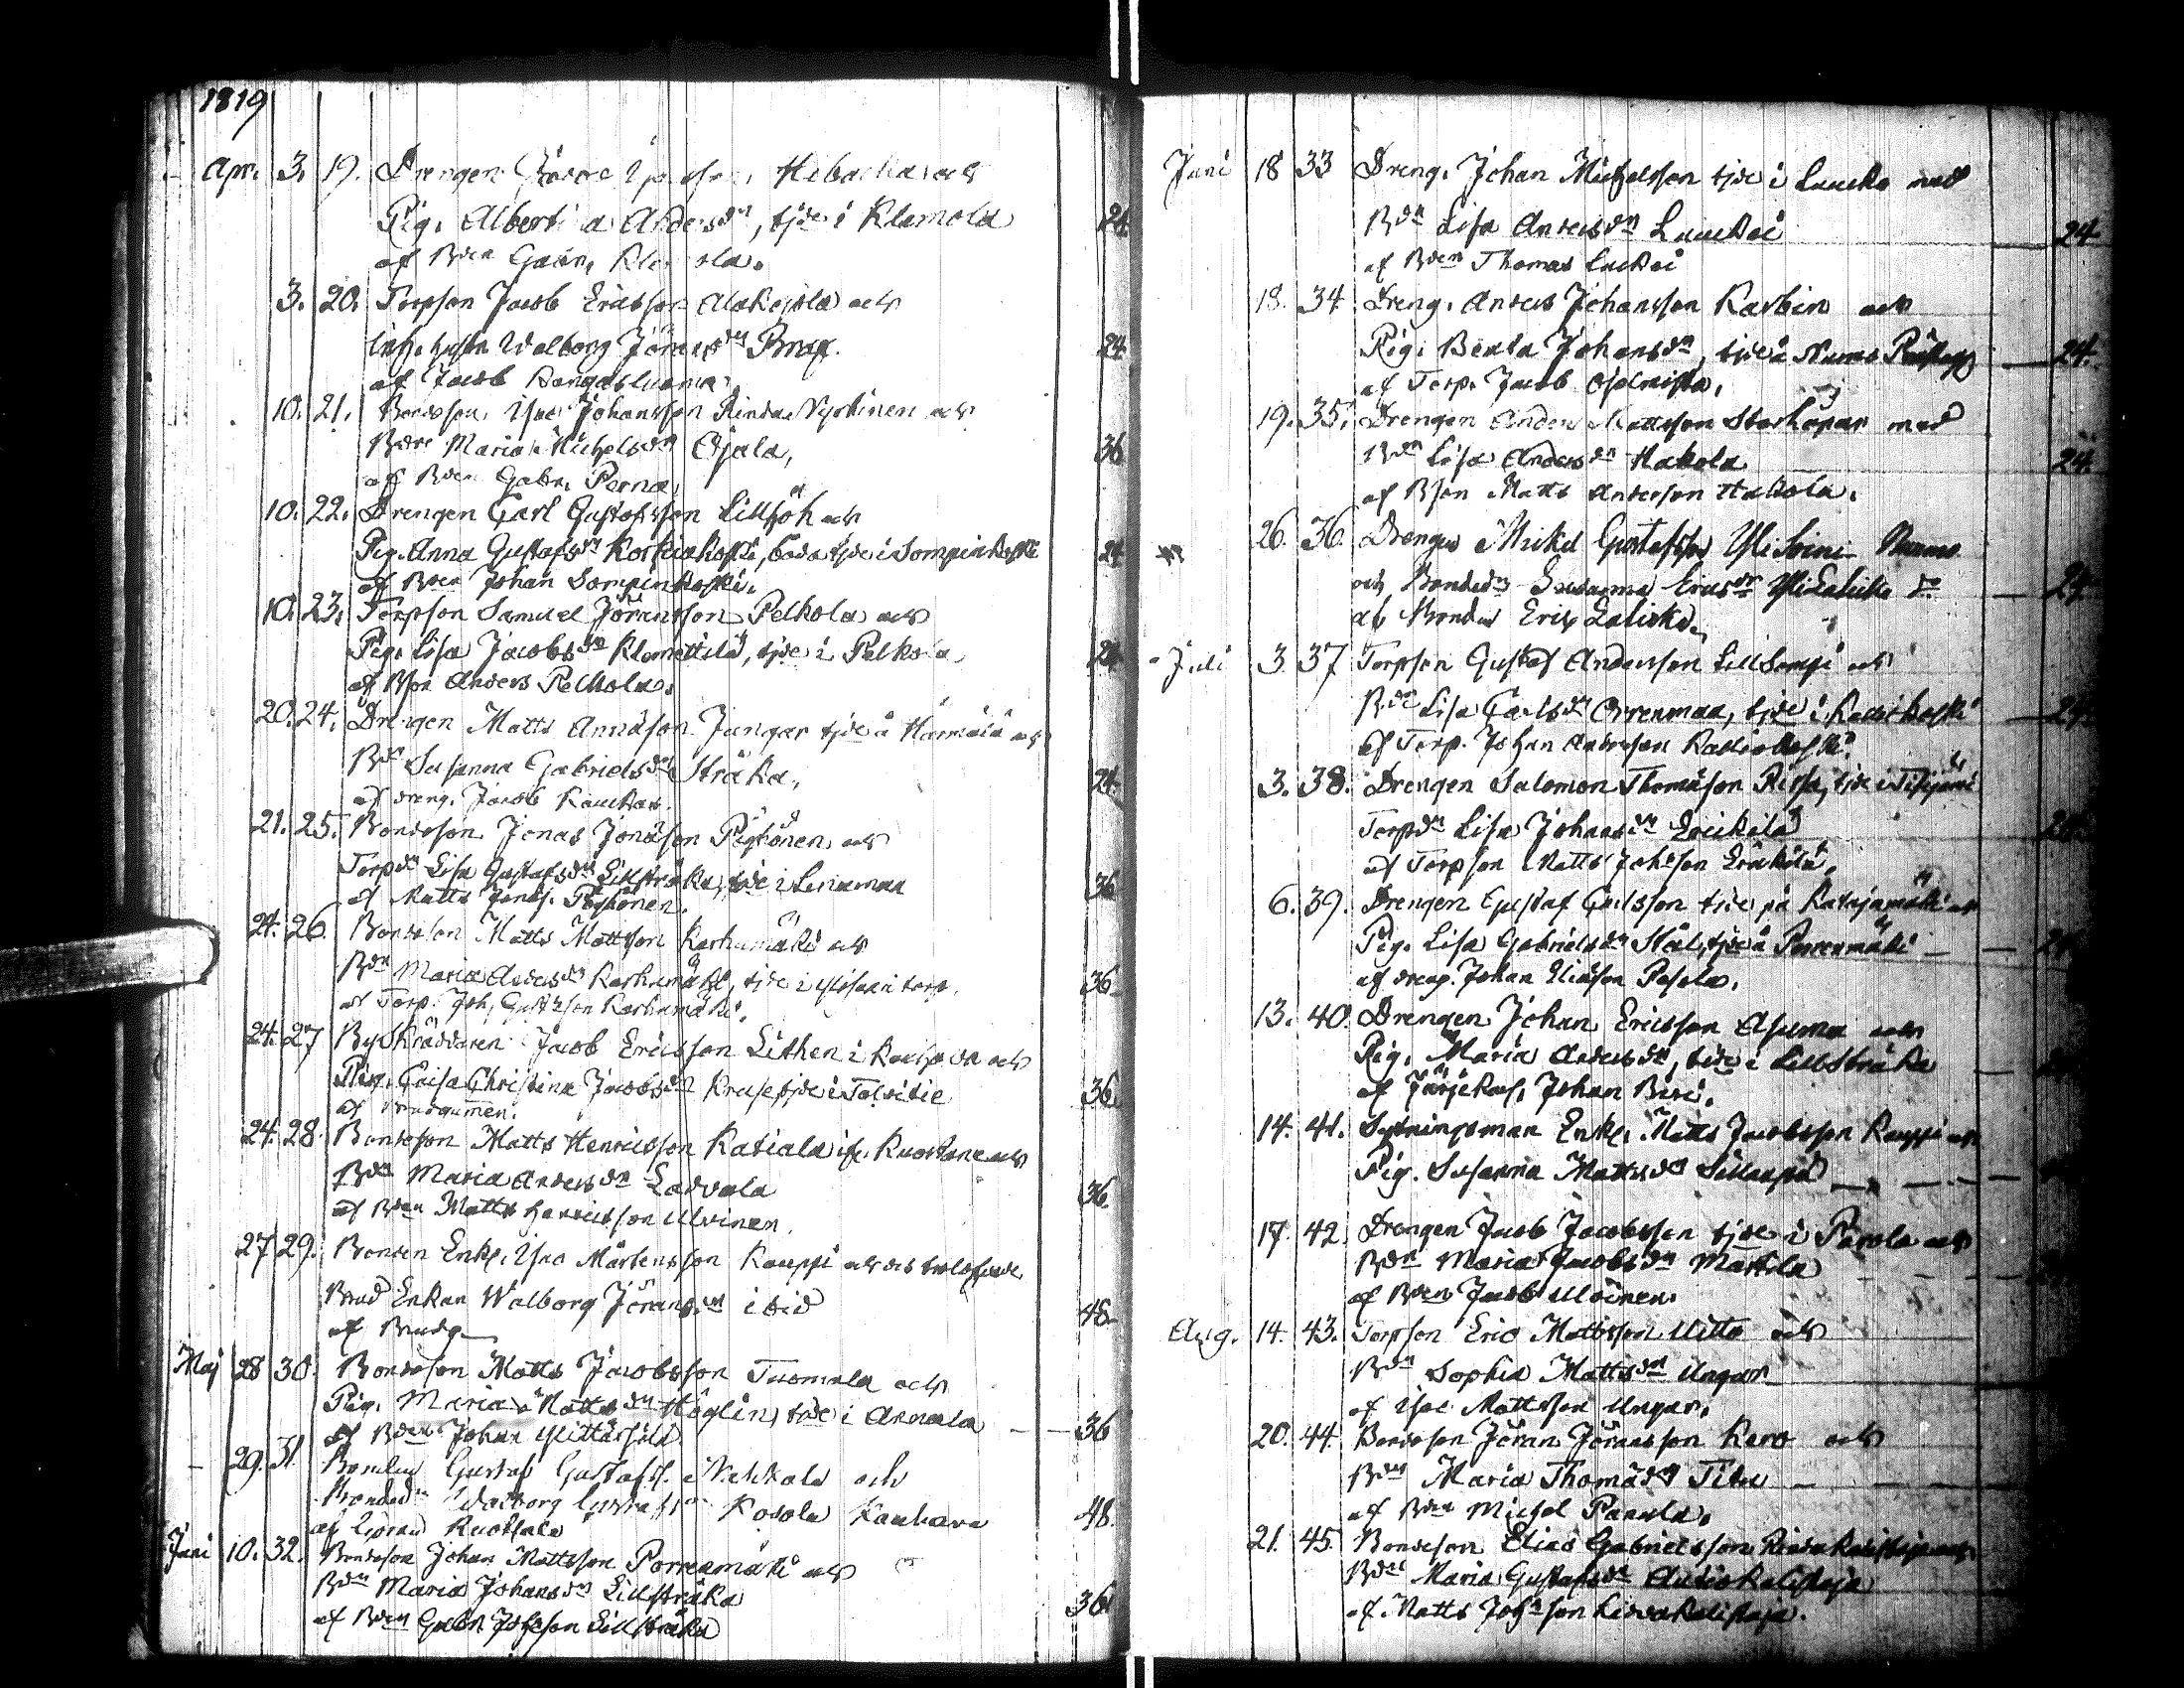 1819
Apr. 3. 19. Drengen Hibacka och
Pig. Albertina Andersdn, tjde i Klemola 24.
af Bden Gabr. Klemola.
3. 20. Torpson Jacob Ericsson Alakojola och
Walborg Jöransdn Brax. 24
af Jacob Kangasluoma.
10. 21. Bondeson, Isac Johansson Rinda Nyrkinen och
Bdre Maria Michelsdn Ojala, 36
af Bden Gabr. Perna,
10. 22. Drengen Carl Gustafsson Lillsjöh och
Pig. Anna Gustafsdn Korkiakoski, båda tjde i Sompinkoski 24
af Bden Johan Sompinkoski.
10. 23. Torpson Samuel Jöransson Pelkola och
Pig. Lisa Jacobsdn Klemettilä, tjde i Pelkola 24
af Bson Anders Pelkola.
20. 24. Drengen Matts Annäson Jungar tjde å Härmälä och
Bdn Susanna Gabrielsdn Stråka, 24.
af dreng. Jacob Kauckas.
21. 25. Bondeson Jonas Jonäson Pöyhönen, och
Torpdn Lisa Gustafsdn Lillstråka, tjde i Linamaa 36
af Matts Jonäs. Pöyhönen.
24. 26. Bondeson Matts Mattson Karhumäki och
Bdn Maria Andersdn Karhumäki, tjde i torp. 36
af Torp. Joh. Gustafson Karhumäki.
24. 27 BySkräddaren Jacob Ericsson Lithen i Kauhava och
Pig. Caisa Christina Jacobsdn Kruse tjde i Talvitie 36
af Brudgummen.
24. 28. Bondeson Matts Henricsson Katiala if. Kuortane och
Bdn Maria Andersdn Ladvala 36
af Bden Matts Henricsson Ulvinen.
27 29. Bonden Enkl. Isac Mårtensson Kauppi och des trolofvade
Brud Enkan Walborg Jöransdn ibid 48
af Brudg.
Maj 28 30. Bondeson Matts Jacobsson Tuomala och
Pig. Maria Mattsdn Höglin, tjde i Annala 36
af Bden Johan Ylittärhilä
29. 31. Bonden Gustaf Gustafss. i Nahkala och
Bondedn Walborg Gustafsdn Kosola Kauhava 48.
af Göran Ruotsala
Juni 10. 32. Bondeson Johan Mattsson Porrenmäki och
Bdn Maria Johansdn Lillstråka 36
af Bden Gabr. Johsson Lillstråka
Juni 18 33 Dreng. Johan Michelsson tjde i Lucko med
Bdn Lisa Andersdn Luuckoi 24
af Bden Thomas Luckoi
18. 34 Dreng. Anders Johansson Karbin och
Pig. Beata Johansdn, tjde å Nurmo Prästegd 24.
af Torp. Jacob Ojalnista,
19. 35. Drengen Anders Mattsson Storkåpar med
Bdn Lisa Andersdn Hakola 24.
af Bson Matts Anderson Hakola.
26. 36. Drengen Mickel Gustafsson Yli Soini Nurmo
och Bondedn Susanna Ericsdn Yli Laliuka do 24
af Bonden Eric Laliuka.
Juli 3 37 Torpson Gustaf Andersson Lillsompi och
Bdn Lisa Carlsdn Orrenmaa, tjde i Kackikoski 24.
af Torp. Johan Andersson Kackikoski.
3. 38. Drengen Salomon Thomäson Rissa, tjde i
Torpdn Lisa Johansdn Erickilä 24.
af Torpson Matts Johsson Erickilä.
6. 39. Drengen Gustaf Carlsson tjde på Katajamäki och
Pig. Lisa Gabrielsdn Stål, tjde å Porrenmäki 24
af dreng. Johan Eliäson Pasola.
13. 40. Drengen Johan Ericsson Asuma och
Pig. Maria Andersdn, tjde i Lillstråka
af Johan Bisi.
14. 41. Sytningsman Enkl. Matts Jacobsson Kauppi och
Pig. Susanna Mattsdn Sillanpä
17. 42. Drengen Jacob Jacobsson tjde i Pasola och
Bdn Maria Jacobsdn Martila
af Bden Jacob Ulvinen.
Aug. 14. 43. Torpson Eric Mattsson Uitto och
Bdn Sophia Mattsdn Ungar
af Isac Mattsson Ungar.
20. 44. Bondeson Jöran Jöransson Kero och
Bdn Maria Thomädn Titu
af Bden Michel Panula.
21. 45 Bondeson Elias Gabrielsson Rinda
Bdn Maria Gustafsdn
af Matts Johsson